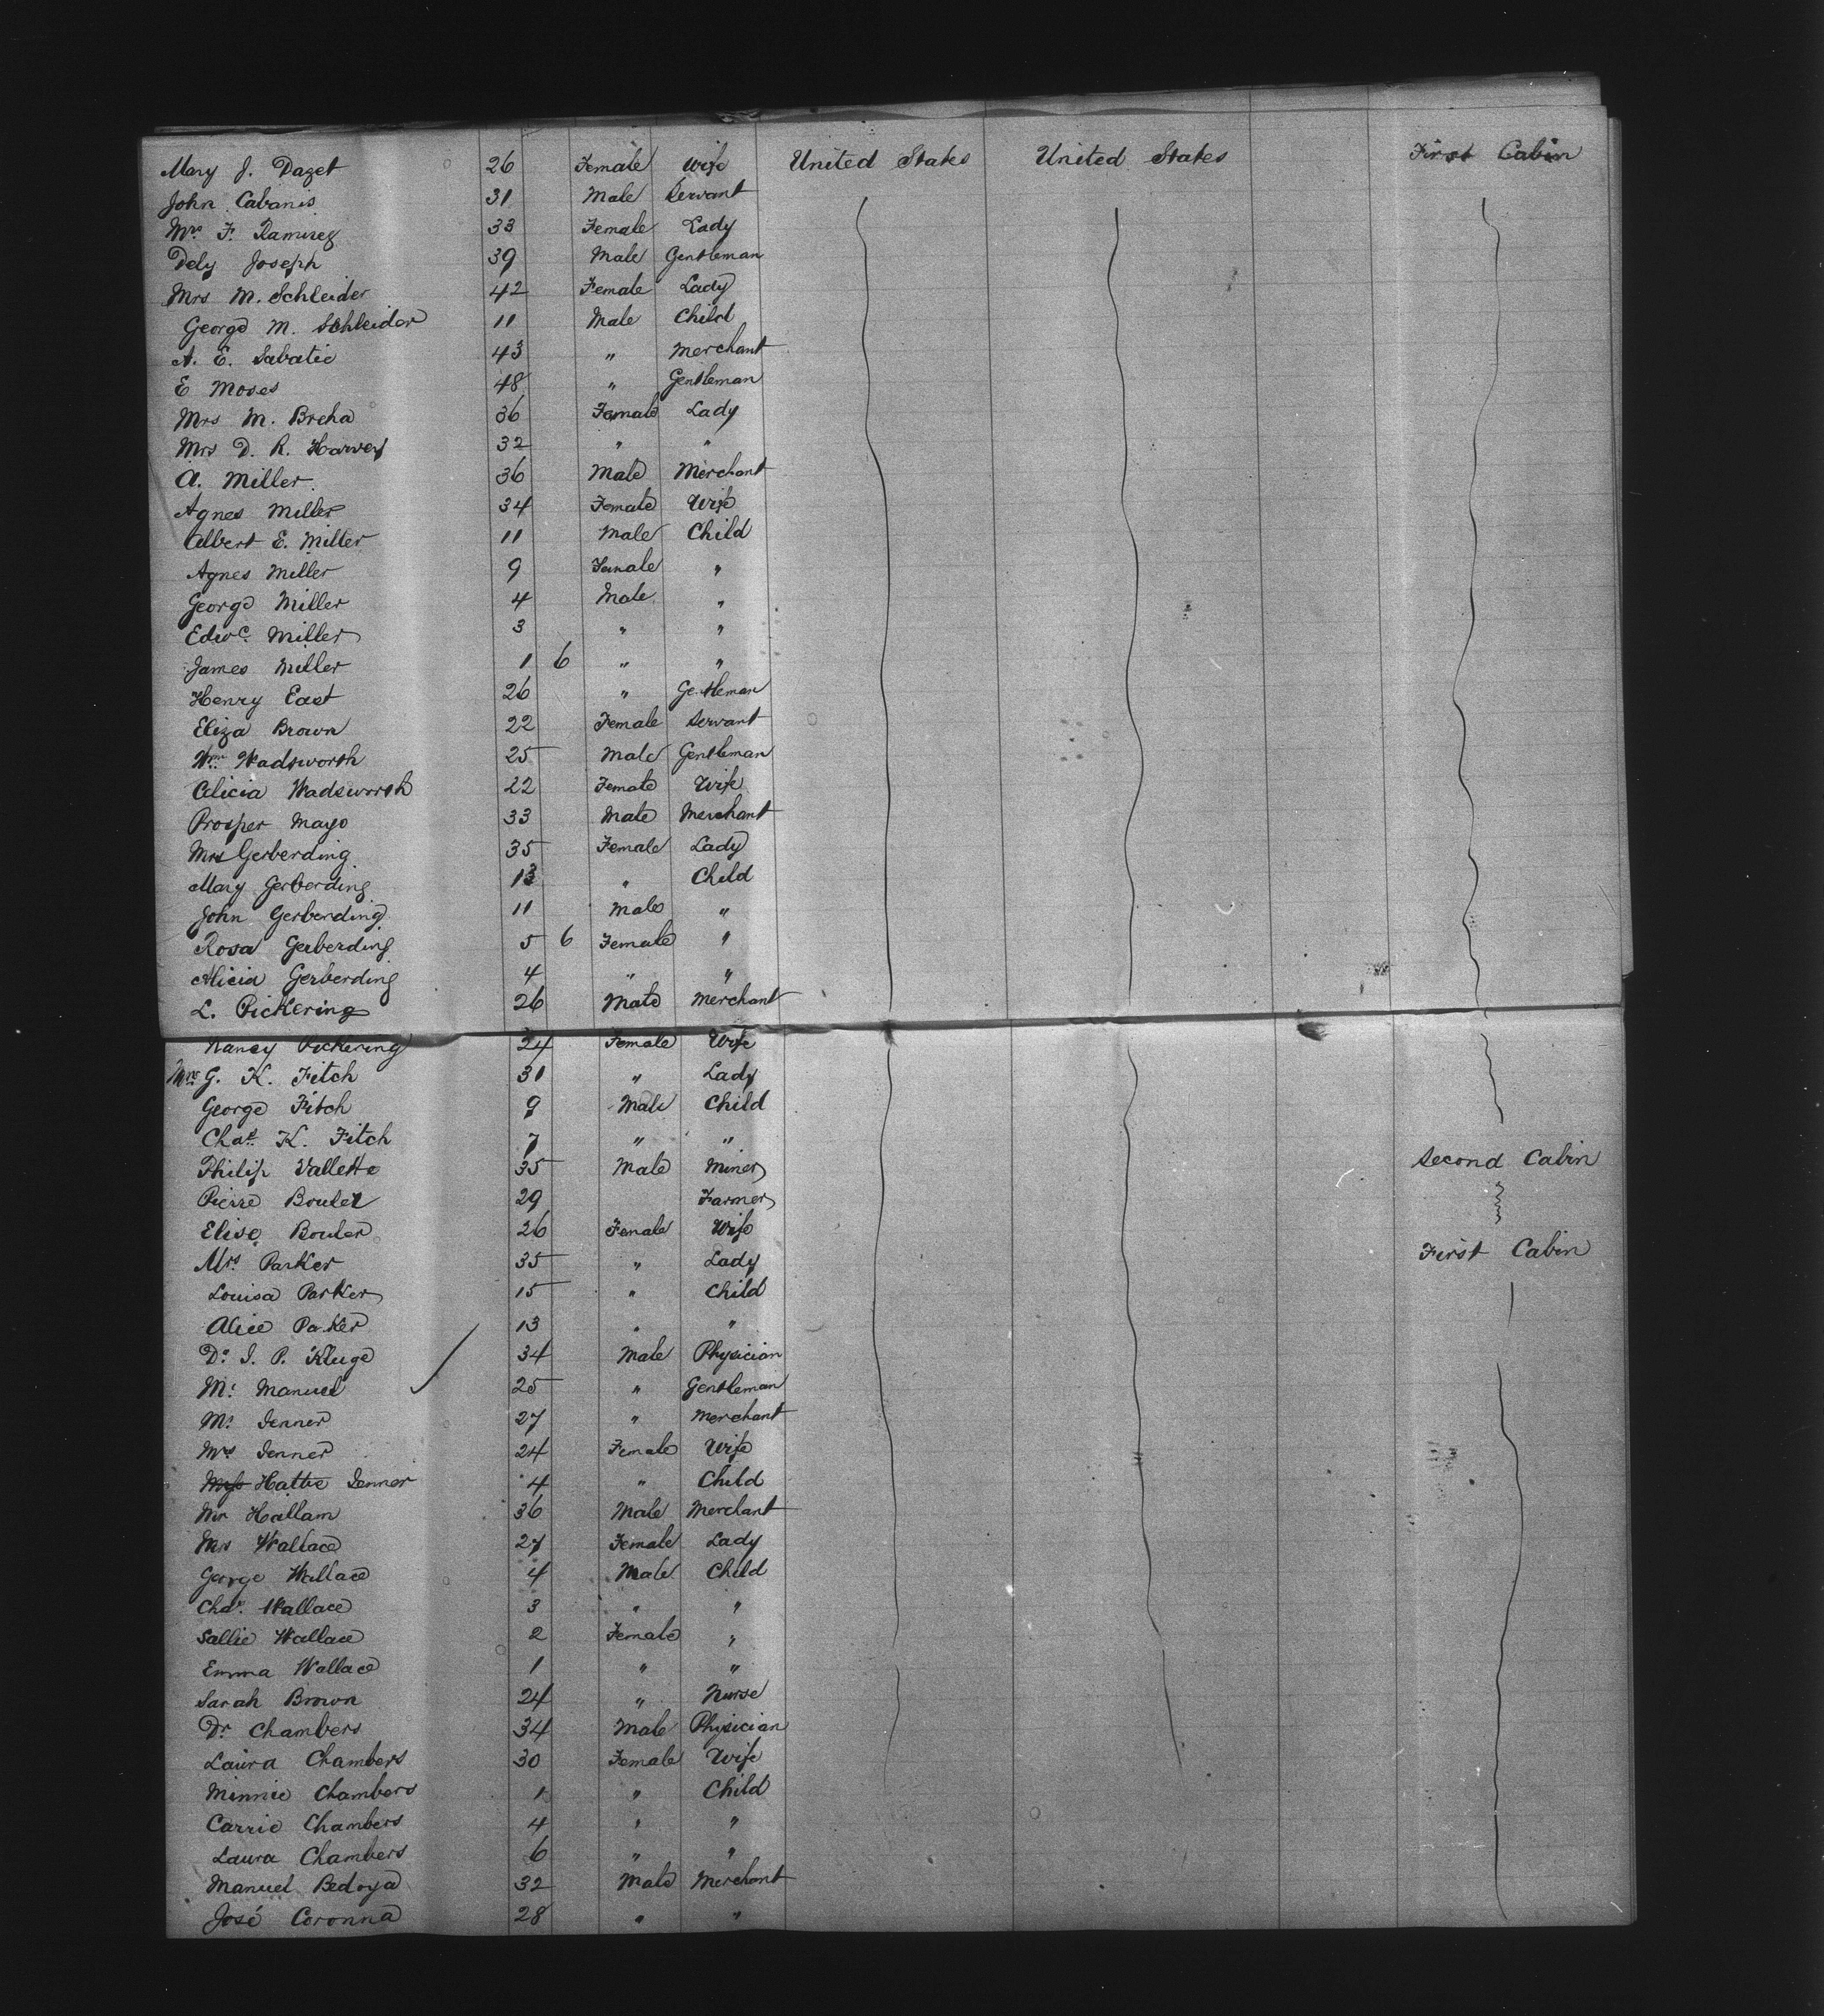 Mary J. Dazet 26 Female Wife United States United States First Cabin
John Cabanis 31 Male Servant
Mrs. F. Ramirez 33 Female Lady
Dely Joseph 39 Male Gentleman
Mrs M. Schleider 42 Female Lady
George M. Schleider 11 Male Child
A. E. Sabatie 43 " Merchant
E Moses 48 " Gentleman
Mrs M. Breha 36 Female Lady
Mrs D. R. Harvey 32 " "
A. Miller 36 Male Merchant
Agnes Miller 34 Female Wife
Albert E. Miller 11 Male Child
Agnes Miller 9 Female "
George Miller 4 Male "
Edwc. Miller 3 " "
James Miller 1 6 " "
Henry East 26 " Gentleman
Eliza Brown 22 Female Servant
Wm Wadsworth 25 Male Gentleman
Alicia Wadsworth 22 Female Wife
Prosper Mayo 33 Male Merchant
Mrs Gerberding 35 Female Lady
Mary Gerberding 13 " Child
John Gerberding 11 Male "
Rosa Gerberding 5 6 Female "
Alicia Gerberding 4 " "
L. Pickering 26 Male Merchant
Nancy Pickering 24 Female Wife
Mrs G. K. Fitch 31 " Lady
George Fitch 9 Male Child
Chas. K. Fitch 7 " "
Philip Vallette 35 Male Miner Second Cabin
Pierre Bouler 29 Farmer
Elise Bouler 26 Female Wife
Mrs. Parker 35 " Lady First Cabin
Louisa Parker 15 " Child
Alice Parker 13 " "
Dr. J. P. Kluge 34 Male Physician
Mr. Manuel 25 " Gentleman
Mr. Jenner 27 " Merchant
Mrs Jenner 24 Female Wife
Miss Hattie Jenner 4 " Child
Mr Hallam 36 Male Merchant
Mrs Wallace 27 Female Lady
George Wallace 4 Male Child
Chas. Wallace 3 " "
Sallie Wallace 2 Female "
Emma Wallace 1 " "
Sarah Brown 24 " Nurse
Dr Chambers 34 Male Physician
Laura Chambers 30 Female Wife
Minnie Chambers 1 " Child
Carrie Chambers 4 " "
Laura Chambers 6 " "
Manuel Bedoya 32 Male Merchant
José Coronna 28 " "